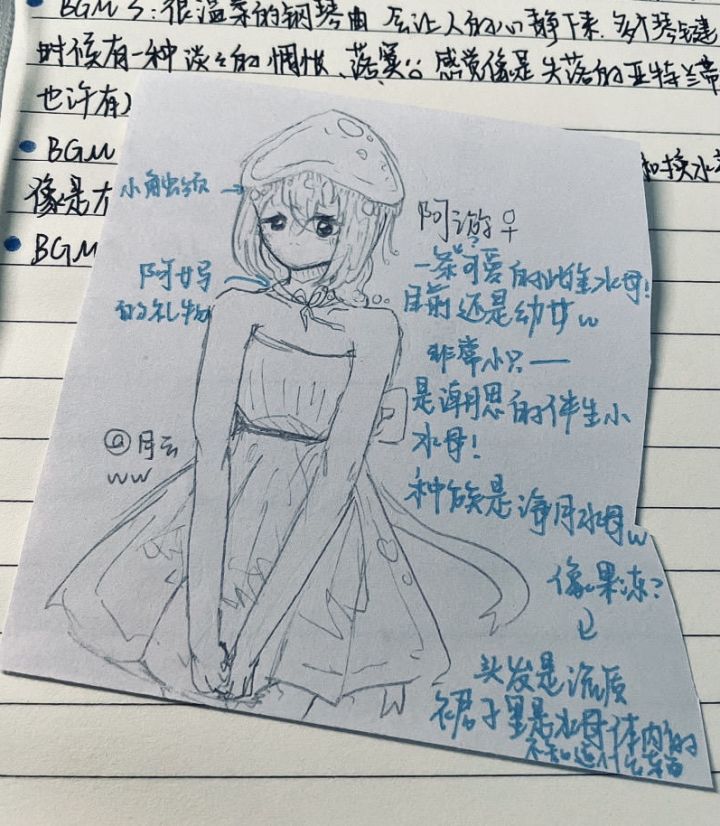 BGM 3:很温柔的钢琴曲 会让人的心静下来.
时候有一种淡淡的惆怅、落寞。感觉像是失落的亚特兰蒂
也许有
BGM
和换水
像是
BGM
小触须
阿游♀
一条可爱的雌水母!
目前还是幼女w
阿妈
的礼物
非常小只——
是潮思的伴生小
水母!
@月云
ww
种族是海月水母w
像果冻?
头发是流质
裙子里是水母体内的
不知道什么东西